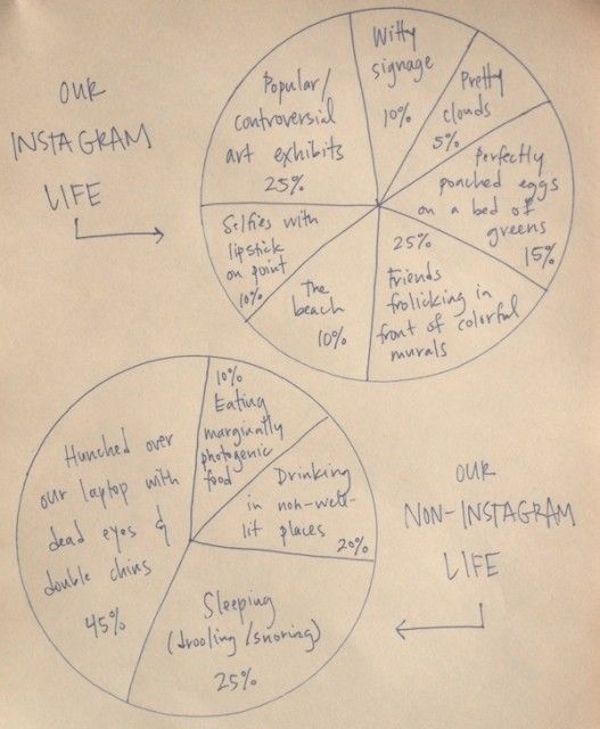 OUR
INSTAGRAM
LIFE
Witty
signage
10%
Pretty
clouds
5%
Perfectly
poached eggs
on a bed of
greens
15%
25%
Friends
frolicking in
front of colorful
murals
The
beach
10%
Selfies with
lipstick
on point
10%
Popular/
controversial
art exhibits
25%
10%
Eating
marginally
photogenic
food
Drinking
in non-well-
lit places
20%
Sleeping
(drooling/snoring)
25%
Hunched over
our laptop with
dead eyes &
double chins
45%
OUR
NON-INSTAGRAM
LIFE